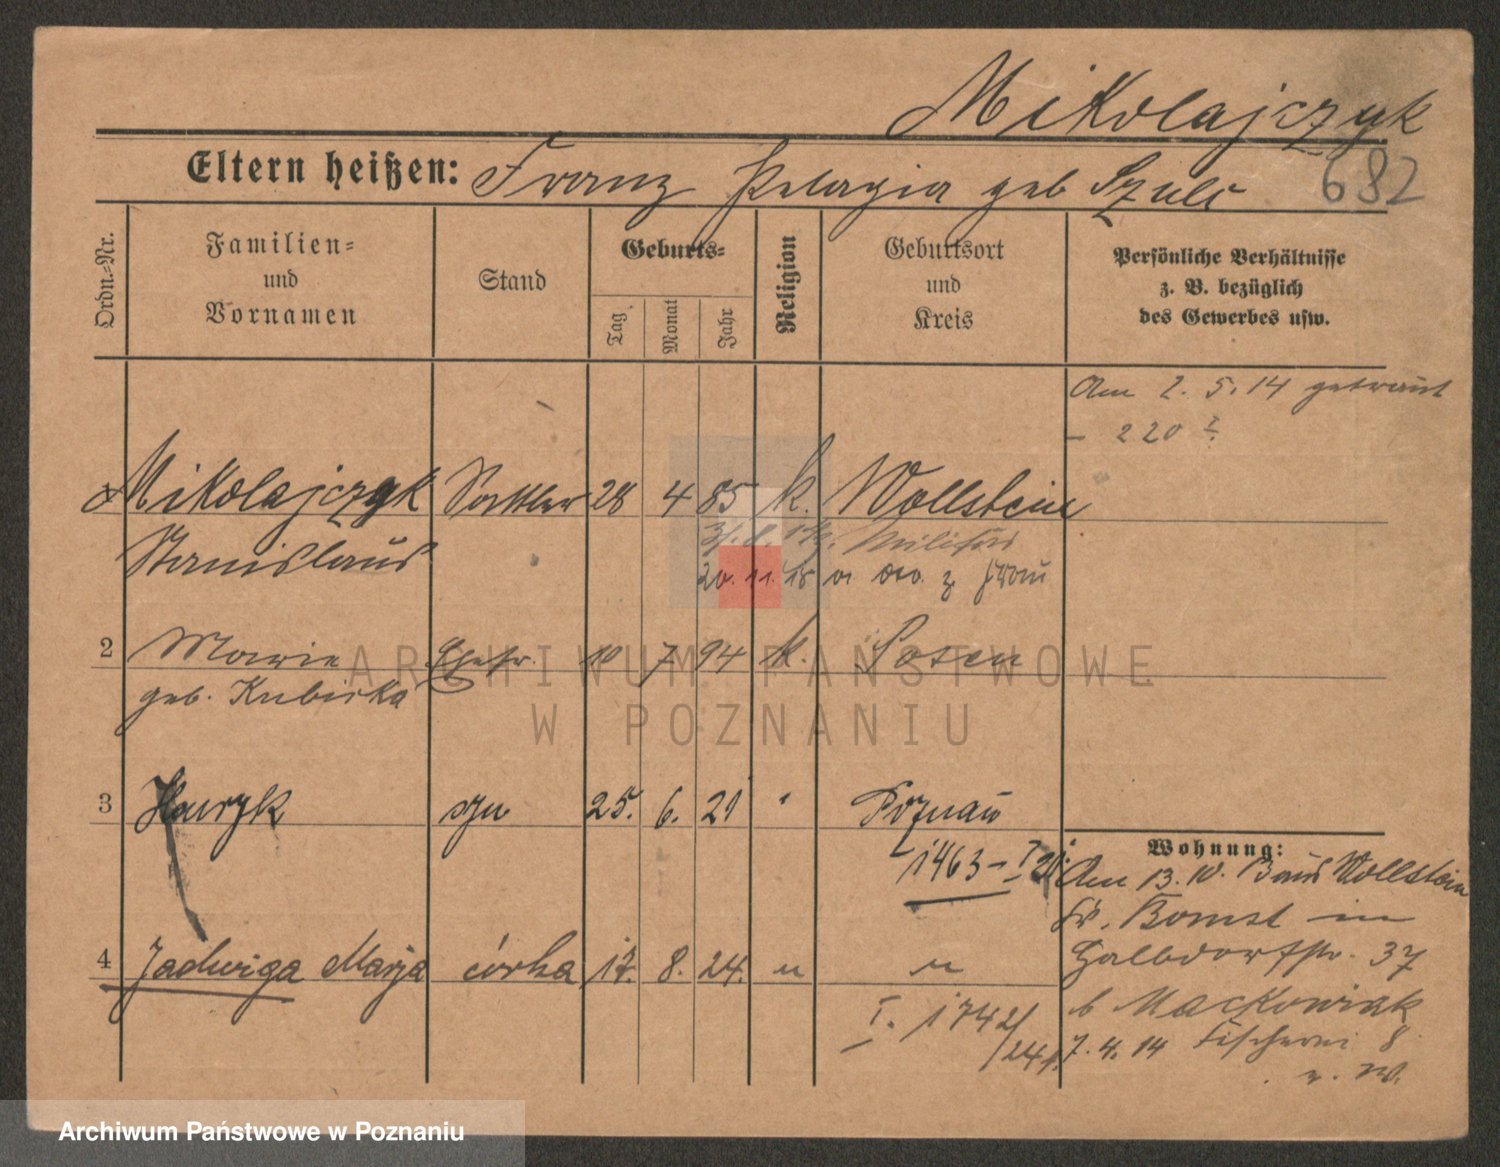 Mikolajczyk
682
Eltern heißen: Franz Pelagia geb Szulc
Ordn.=Nr.
Familien=
und
Vornamen
Stand
Geburts=
Tag
Monat
Jahr
Religion
Geburtsort
und
Kreis
Persönliche Verhältnisse
z. B. bezüglich
des Gewerbes usw.
Am 2. 5. 14 getraut
- 220 I.
1 Mikolajczyk Sattler 28 4 85 k. Wollstein
Stanislaus
Militär
20. 11. 18 z Frau
2 Marie Ehefr. 10 7 94 k. Posen
geb. Kubicka
3 Henryk syn 25. 6. 21 " Poznań
1463 - I 21.
4 Jadwiga Marja córka 17. 8. 24. " "
I. 1742/
/24
Wohnung:
Am 13. 10. aus Wollstein
Kr. Bomst in
Halbdorfstr. 37
b Mackowiak
7. 4. 14 Fischerei 8
ARCHIWUM PAŃSTWOWE
W POZNANIU
Archiwum Państwowe w Poznaniu